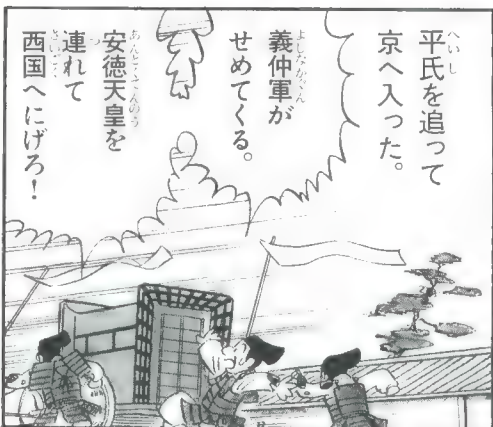 平氏を追って
京へ入った。
義仲軍が
せめてくる。
安徳天皇を
連れて
西国へにげろ!